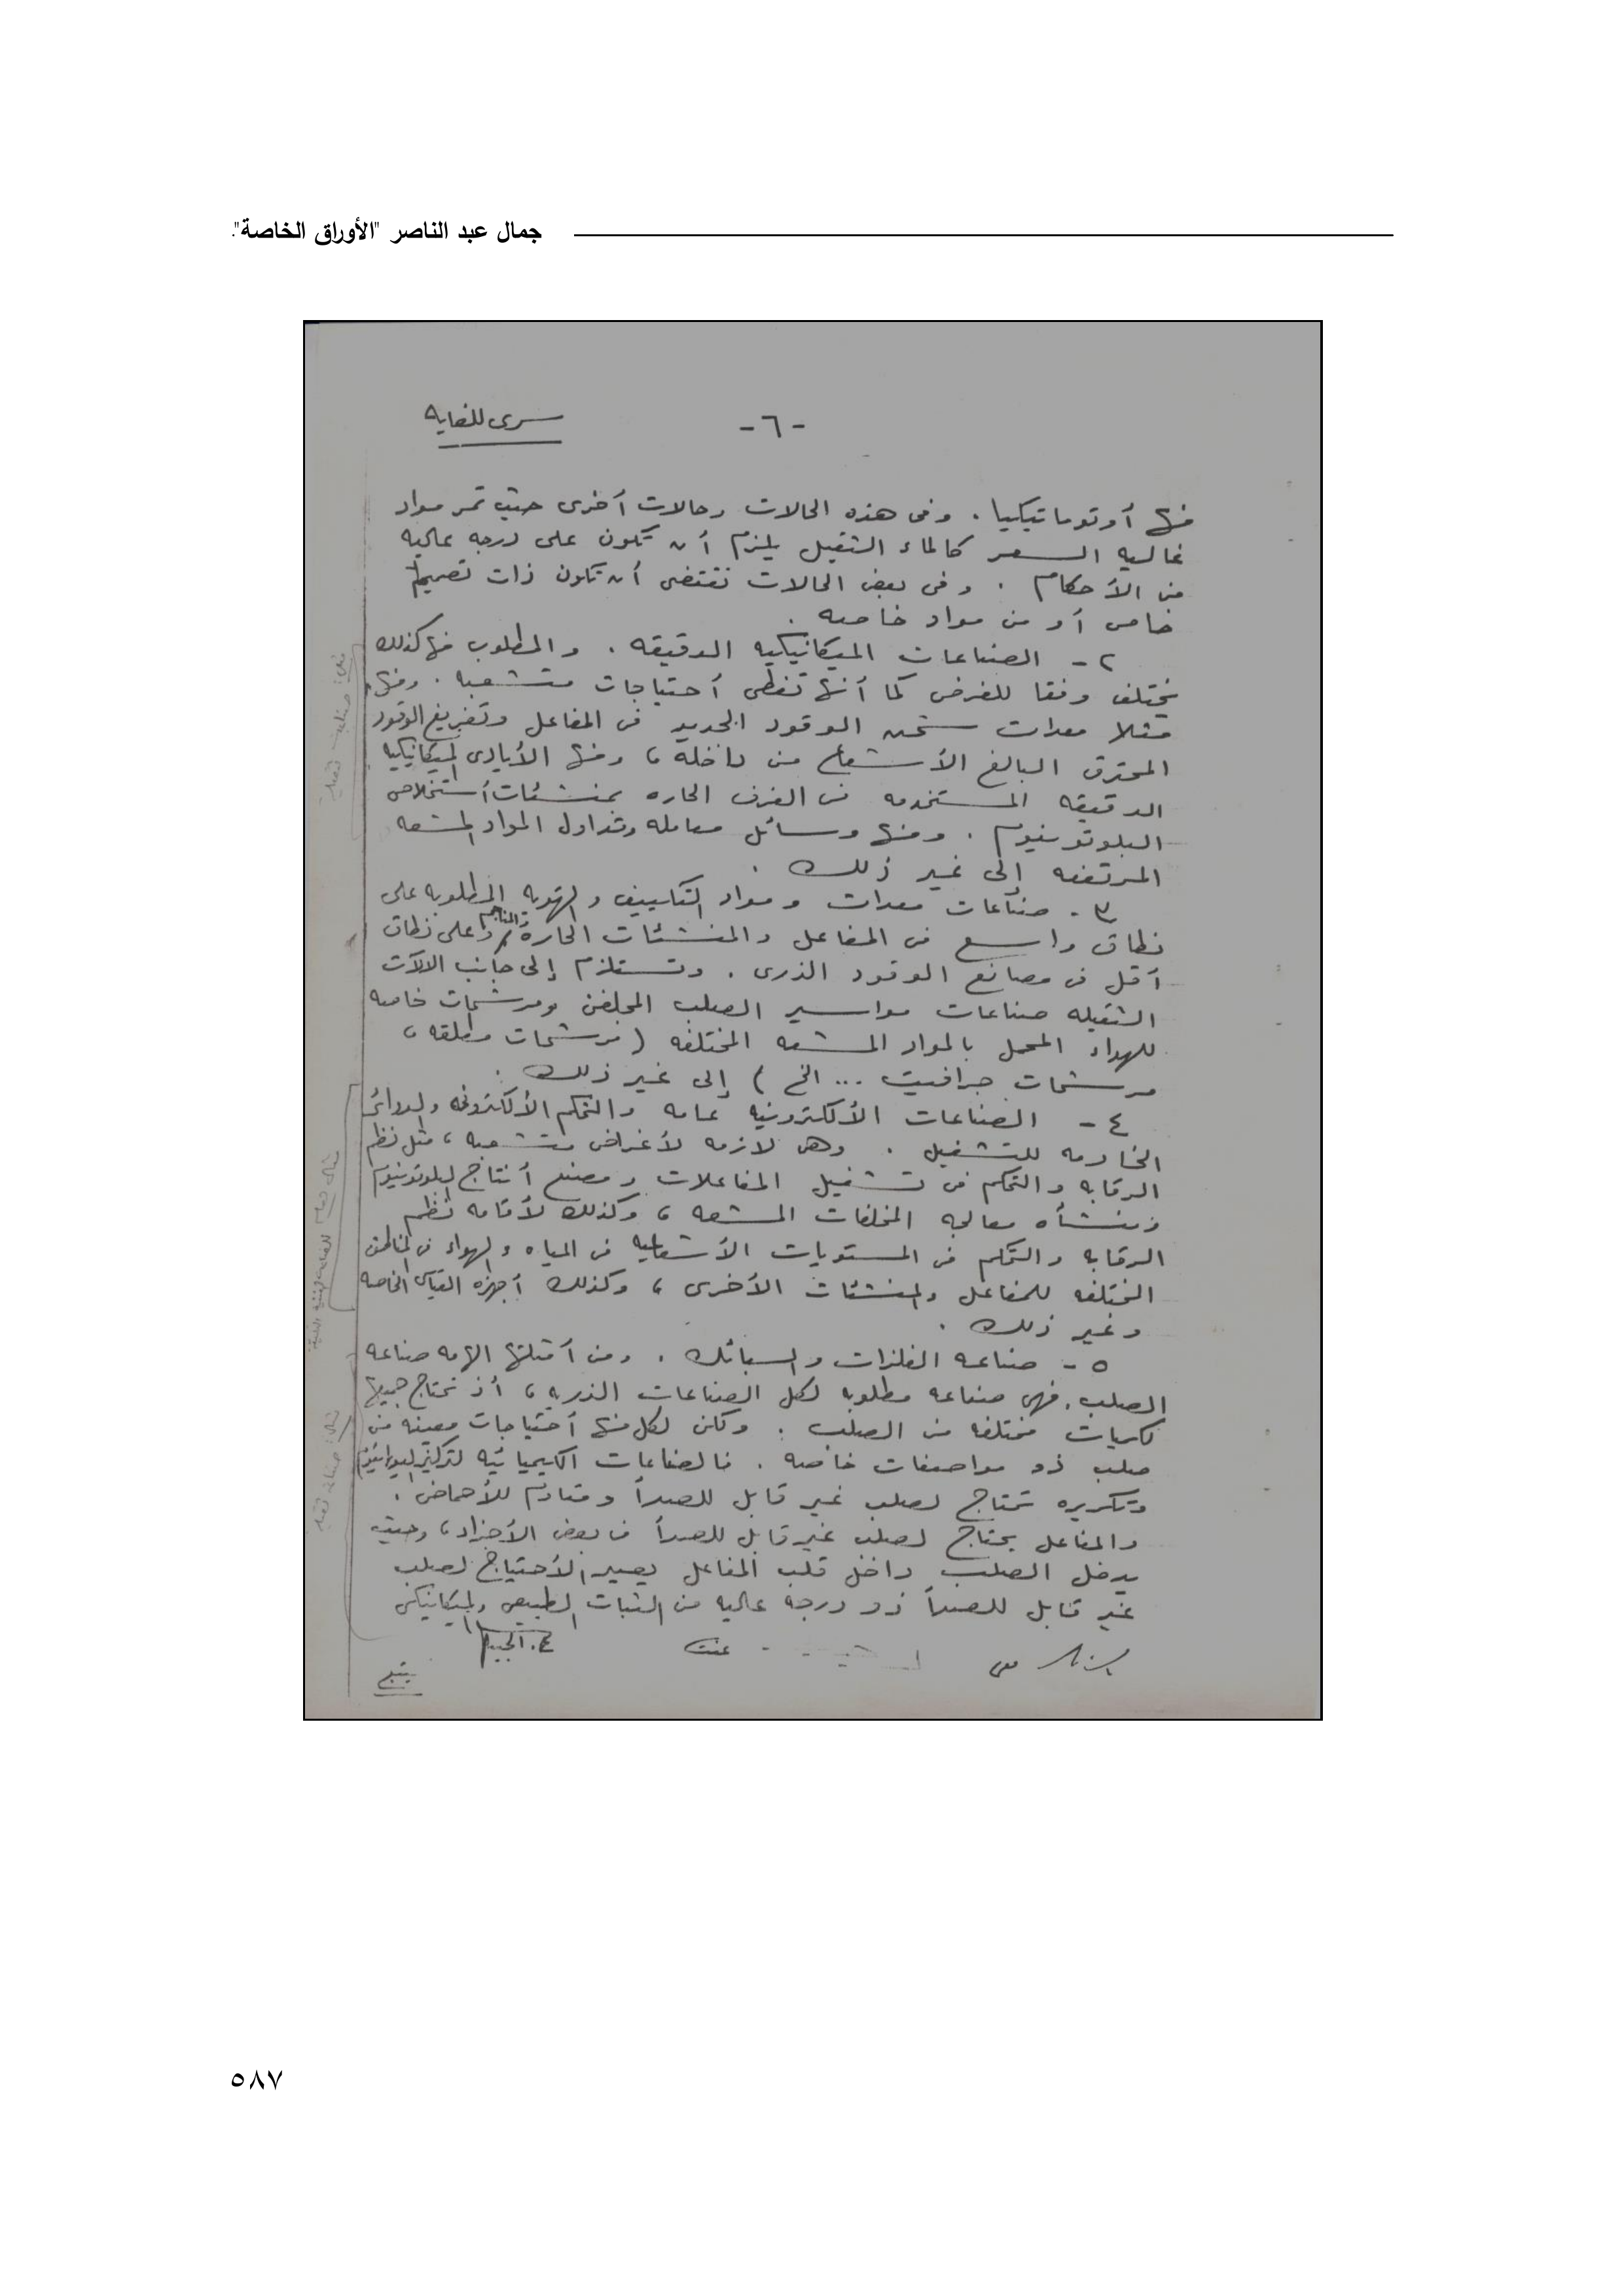 جمال عبد الناصر "الأوراق الخاصة".
سرى للغايه
-٦-
منها أوتوماتيكيا . وفى هذه الحالات وحالات أخرى حيث تمر مواد
غاليه السعر كالماء الثقيل يلزم أن تكون على درجه عاليه
من الأحكام . وفى بعض الحالات تقتضى أن تكون ذات تصميم
خاص أو من مواد خاصه .
٢ - الصناعات الميكانيكيه الدقيقه . والمطلوب منها كذلك
يختلف وفقا للغرض كما أنها تغطى أحتياجات متشعبه . ومنها
مثلا معدات شحن الوقود الجديد فى المفاعل وتفريغ الوقود
المحترق البالغ الأشعاع من داخله ، ومنها الأيادى الميكانيكيه
الدقيقه المستخدمه فى الغرف الحاره بمنشئات أستخلاص
البلوتونيوم . ومنها وسائل معامله وتداول المواد المشعه
المرتفعه إلى غير ذلك .
٣ - صناعات معدات ومواد التكييف والتهويه المطلوبه على
نطاق واسع فى المفاعل والمنشئات الحارة والمناجم وعلى نطاق
أقل فى مصانع الوقود الذرى . وتستلزم إلى جانب الآلات
الثقيله صناعات مواسير الصلب المجلفن ومرشحات خاصه
للهواء المحمل بالمواد المشعه المختلفه ( مرشحات مطلقه ،
مرشحات جرافيت ... الخ ) إلى غير ذلك .
٤ - الصناعات الألكترونيه عامه والتحكم الألكترونى والدوائر
الخادمه للتشغيل . وهى لازمه لأغراض متشعبه ، مثل نظم
الرقابه والتحكم فى تشغيل المفاعلات ومصنع أنتاج البلوتونيوم
ومنشأه معالجه المخلفات المشعه ، وكذلك لأقامه نظم
الرقابه والتحكم فى المستويات الأشعاعيه فى المياه والهواء فى المناطق
المختلفه للمفاعل والمنشئات الأخرى ، وكذلك أجهزه القياس الخاصه
وغير ذلك .
٥ - صناعه الفلزات والسبائك . ومن أمثلتها الهامه صناعه
الصلب . فهى صناعه مطلوبه لكل الصناعات الذريه ، أذ تحتاج جميعها
لكميات مختلفه من الصلب . ولكن لكل منها أحتياجات معينه من
صلب ذو مواصفات خاصه . فالصناعات الكيميائيه لتركيز اليورانيوم
وتكريره تحتاج لصلب غير قابل للصدأ ومقاوم للأحماض .
والمفاعل يحتاج لصلب غير قابل للصدأ فى بعض الأجزاء ، وحيث
يدخل الصلب داخل قلب المفاعل يصير الأحتياج لصلب
غير قابل للصدأ ذو درجه عاليه من الثبات الطبيعى والميكانيكى
يتبع
٥٨٧